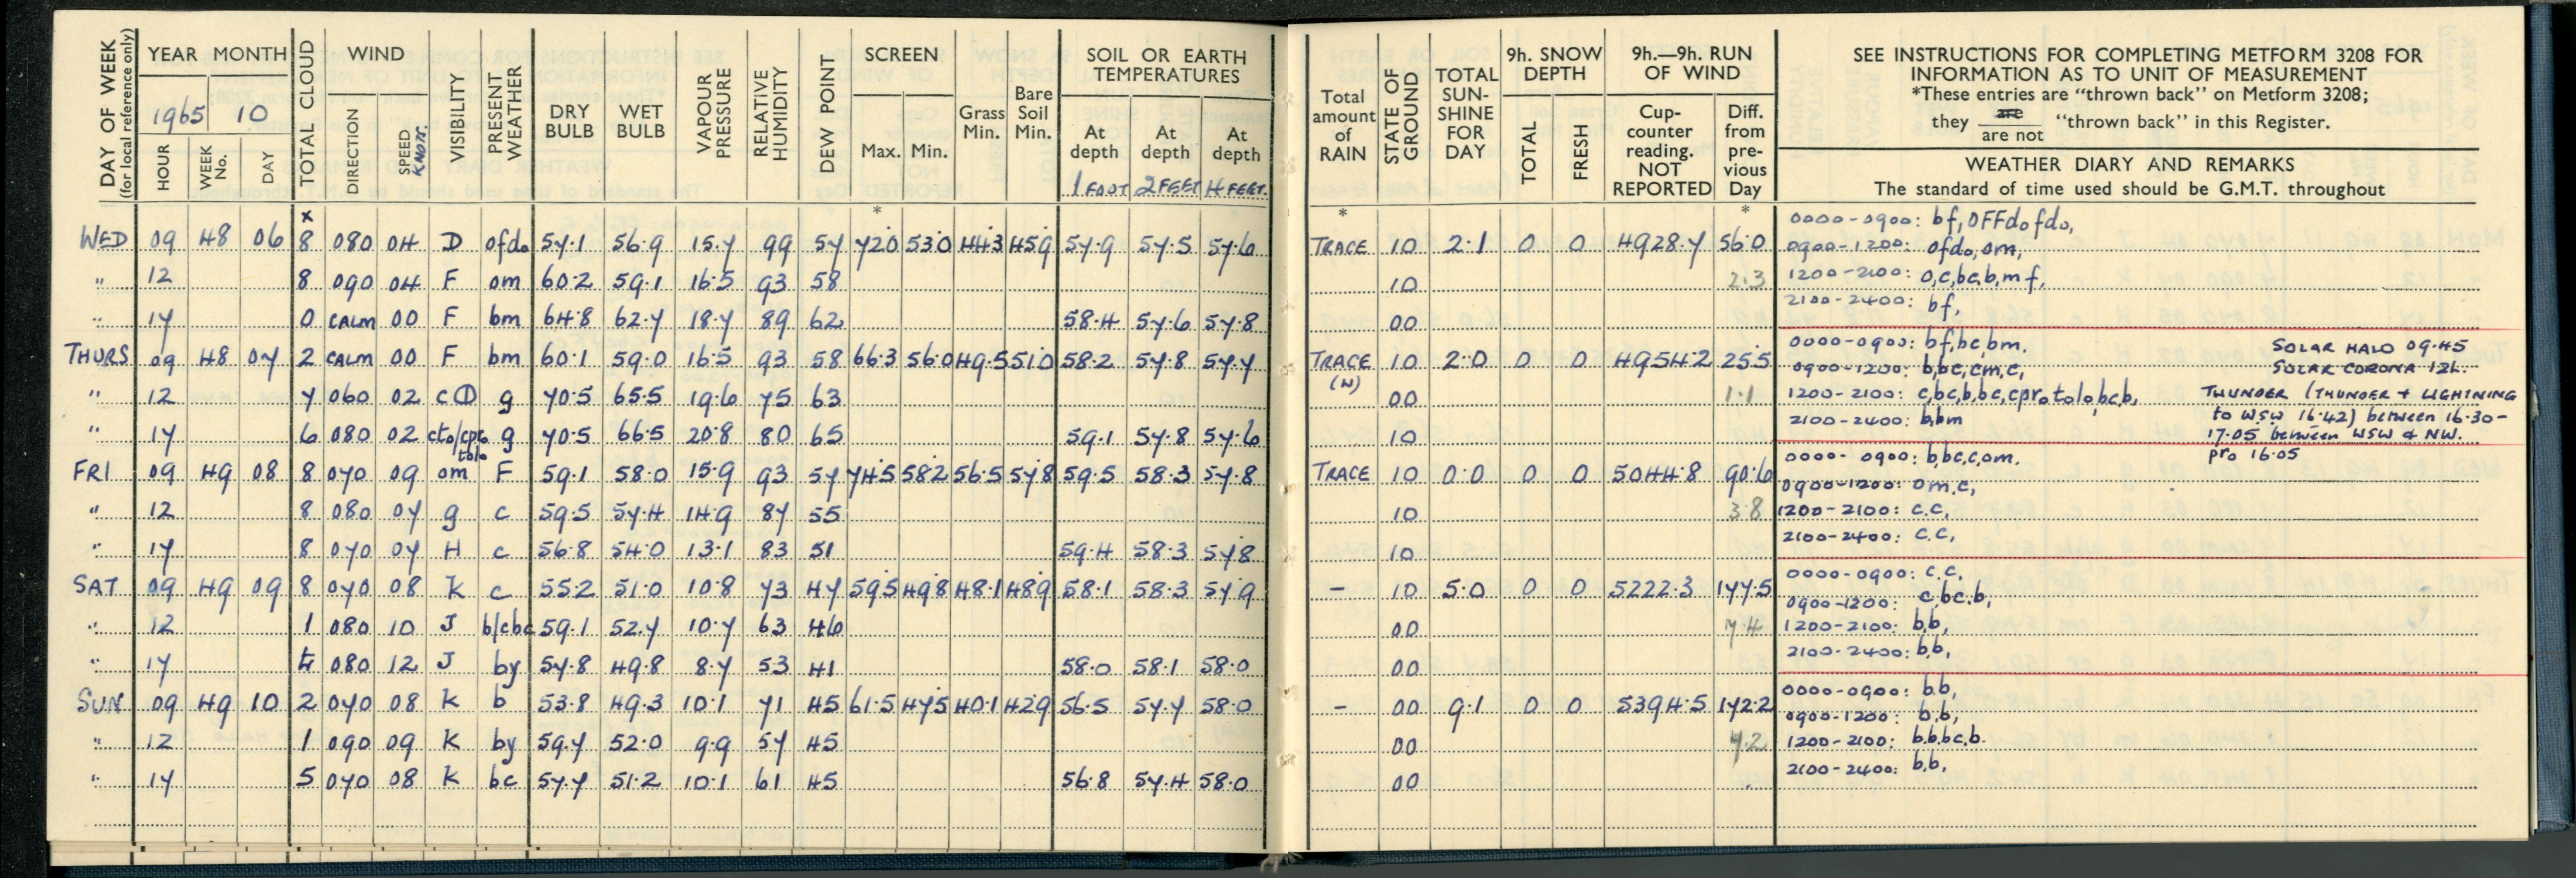 DAY OF WEEK (for local reference only) YEAR MONTH TOTAL CLOUD WIND VISIBILITY PRESENT WEATHER DRY BULB WET BULB VAPOUR PRESSURE RELATIVE HUMIDITY DEW POINT SCREEN Grass Min. Bare Soil Min. SOIL OR EARTH TEMPERATURES
1965 10
HOUR WEEK No. DAY DIRECTION SPEED KNOTS. Max. Min. At depth At depth At depth
1 FOOT 2 FEET 4 FEET
Total amount of RAIN STATE OF GROUND TOTAL SUN-SHINE FOR DAY 9h. SNOW DEPTH 9h.—9h. RUN OF WIND
TOTAL FRESH Cup-counter reading. NOT REPORTED Diff. from pre-vious Day
SEE INSTRUCTIONS FOR COMPLETING METFORM 3208 FOR
INFORMATION AS TO UNIT OF MEASUREMENT
*These entries are "thrown back" on Metform 3208;
they are are not "thrown back" in this Register.
WEATHER DIARY AND REMARKS
The standard of time used should be G.M.T. throughout
x * * *
WED 09 48 06 8 080 04 D ofdo 57.1 56.9 15.7 99 57 72.0 53.0 44.3 45.9 57.9 57.5 57.6 TRACE 10 2.1 0 0 4928.7 56.0
" 12 8 090 04 F om 60.2 59.1 16.5 93 58 10 2.3
" 17 0 CALM 00 F bm 64.8 62.7 18.7 89 62 58.4 57.6 57.8 00
0000-0900: bf, OFFdofdo,
0900-1200: ofdo, om,
1200-2100: o,c,bc,b,m f,
2100-2400: bf,
THURS 09 48 07 2 CALM 00 F bm 60.1 59.0 16.5 93 58 66.3 56.0 49.5 51.0 58.2 57.8 57.7 TRACE (W) 10 2.0 0 0 4954.2 25.5
" 12 7 060 02 c g 70.5 65.5 19.6 75 63 00 1.1
" 17 6 080 02 cto/cpro tolo g 70.5 66.5 20.8 80 65 59.1 57.8 57.6 10
0000-0900: bf,bc,bm.
0900-1200: b,bc,cm,c,
1200-2100: c,bc,b,bc,cprotolo,bc,b,
2100-2400: b,bm
SOLAR HALO 09.45
SOLAR CORONA 12h.
THUNDER (THUNDER + LIGHTNING
to WSW 16.42) between 16.30-
17.05 between WSW & NW.
pro 16.05
FRI 09 49 08 8 070 09 om F 59.1 58.0 15.9 93 57 74.5 58.2 56.5 57.8 59.5 58.3 57.8 TRACE 10 0.0 0 0 5044.8 90.6
" 12 8 080 07 g c 59.5 57.4 14.9 87 55 10 3.8
" 17 8 070 07 H c 56.8 54.0 13.1 83 51 59.4 58.3 57.8 10
0000-0900: b,bc,c,om.
0900-1200: om,c,
1200-2100: c.c,
2100-2400: c.c,
SAT 09 49 09 8 070 08 K c 55.2 51.0 10.8 73 47 59.5 49.8 48.1 48.9 58.1 58.3 57.9 - 10 5.0 0 0 5222.3 177.5
" 12 1 080 10 J b/cbc 59.1 52.7 10.7 63 46 00 7.4
" 17 080 12 J by 57.8 49.8 8.7 53 41 58.0 58.1 58.0 00
0000-0900: c.c,
0900-1200: c,bc.b,
1200-2100: b,b,
2100-2400: b,b,
SUN 09 49 10 2 070 08 K b 53.8 49.3 10.1 71 45 61.5 47.5 40.1 42.9 56.5 57.7 58.0 - 00 9.1 0 0 5394.5 172.2
" 12 1 090 09 K by 59.7 52.0 9.9 57 45 00 7.2
" 17 5 070 08 K bc 57.7 51.2 10.1 61 45 56.8 57.4 58.0 00
0000-0900: b.b,
0900-1200: b.b,
1200-2100: b,b,bc,b.
2100-2400: b,b,